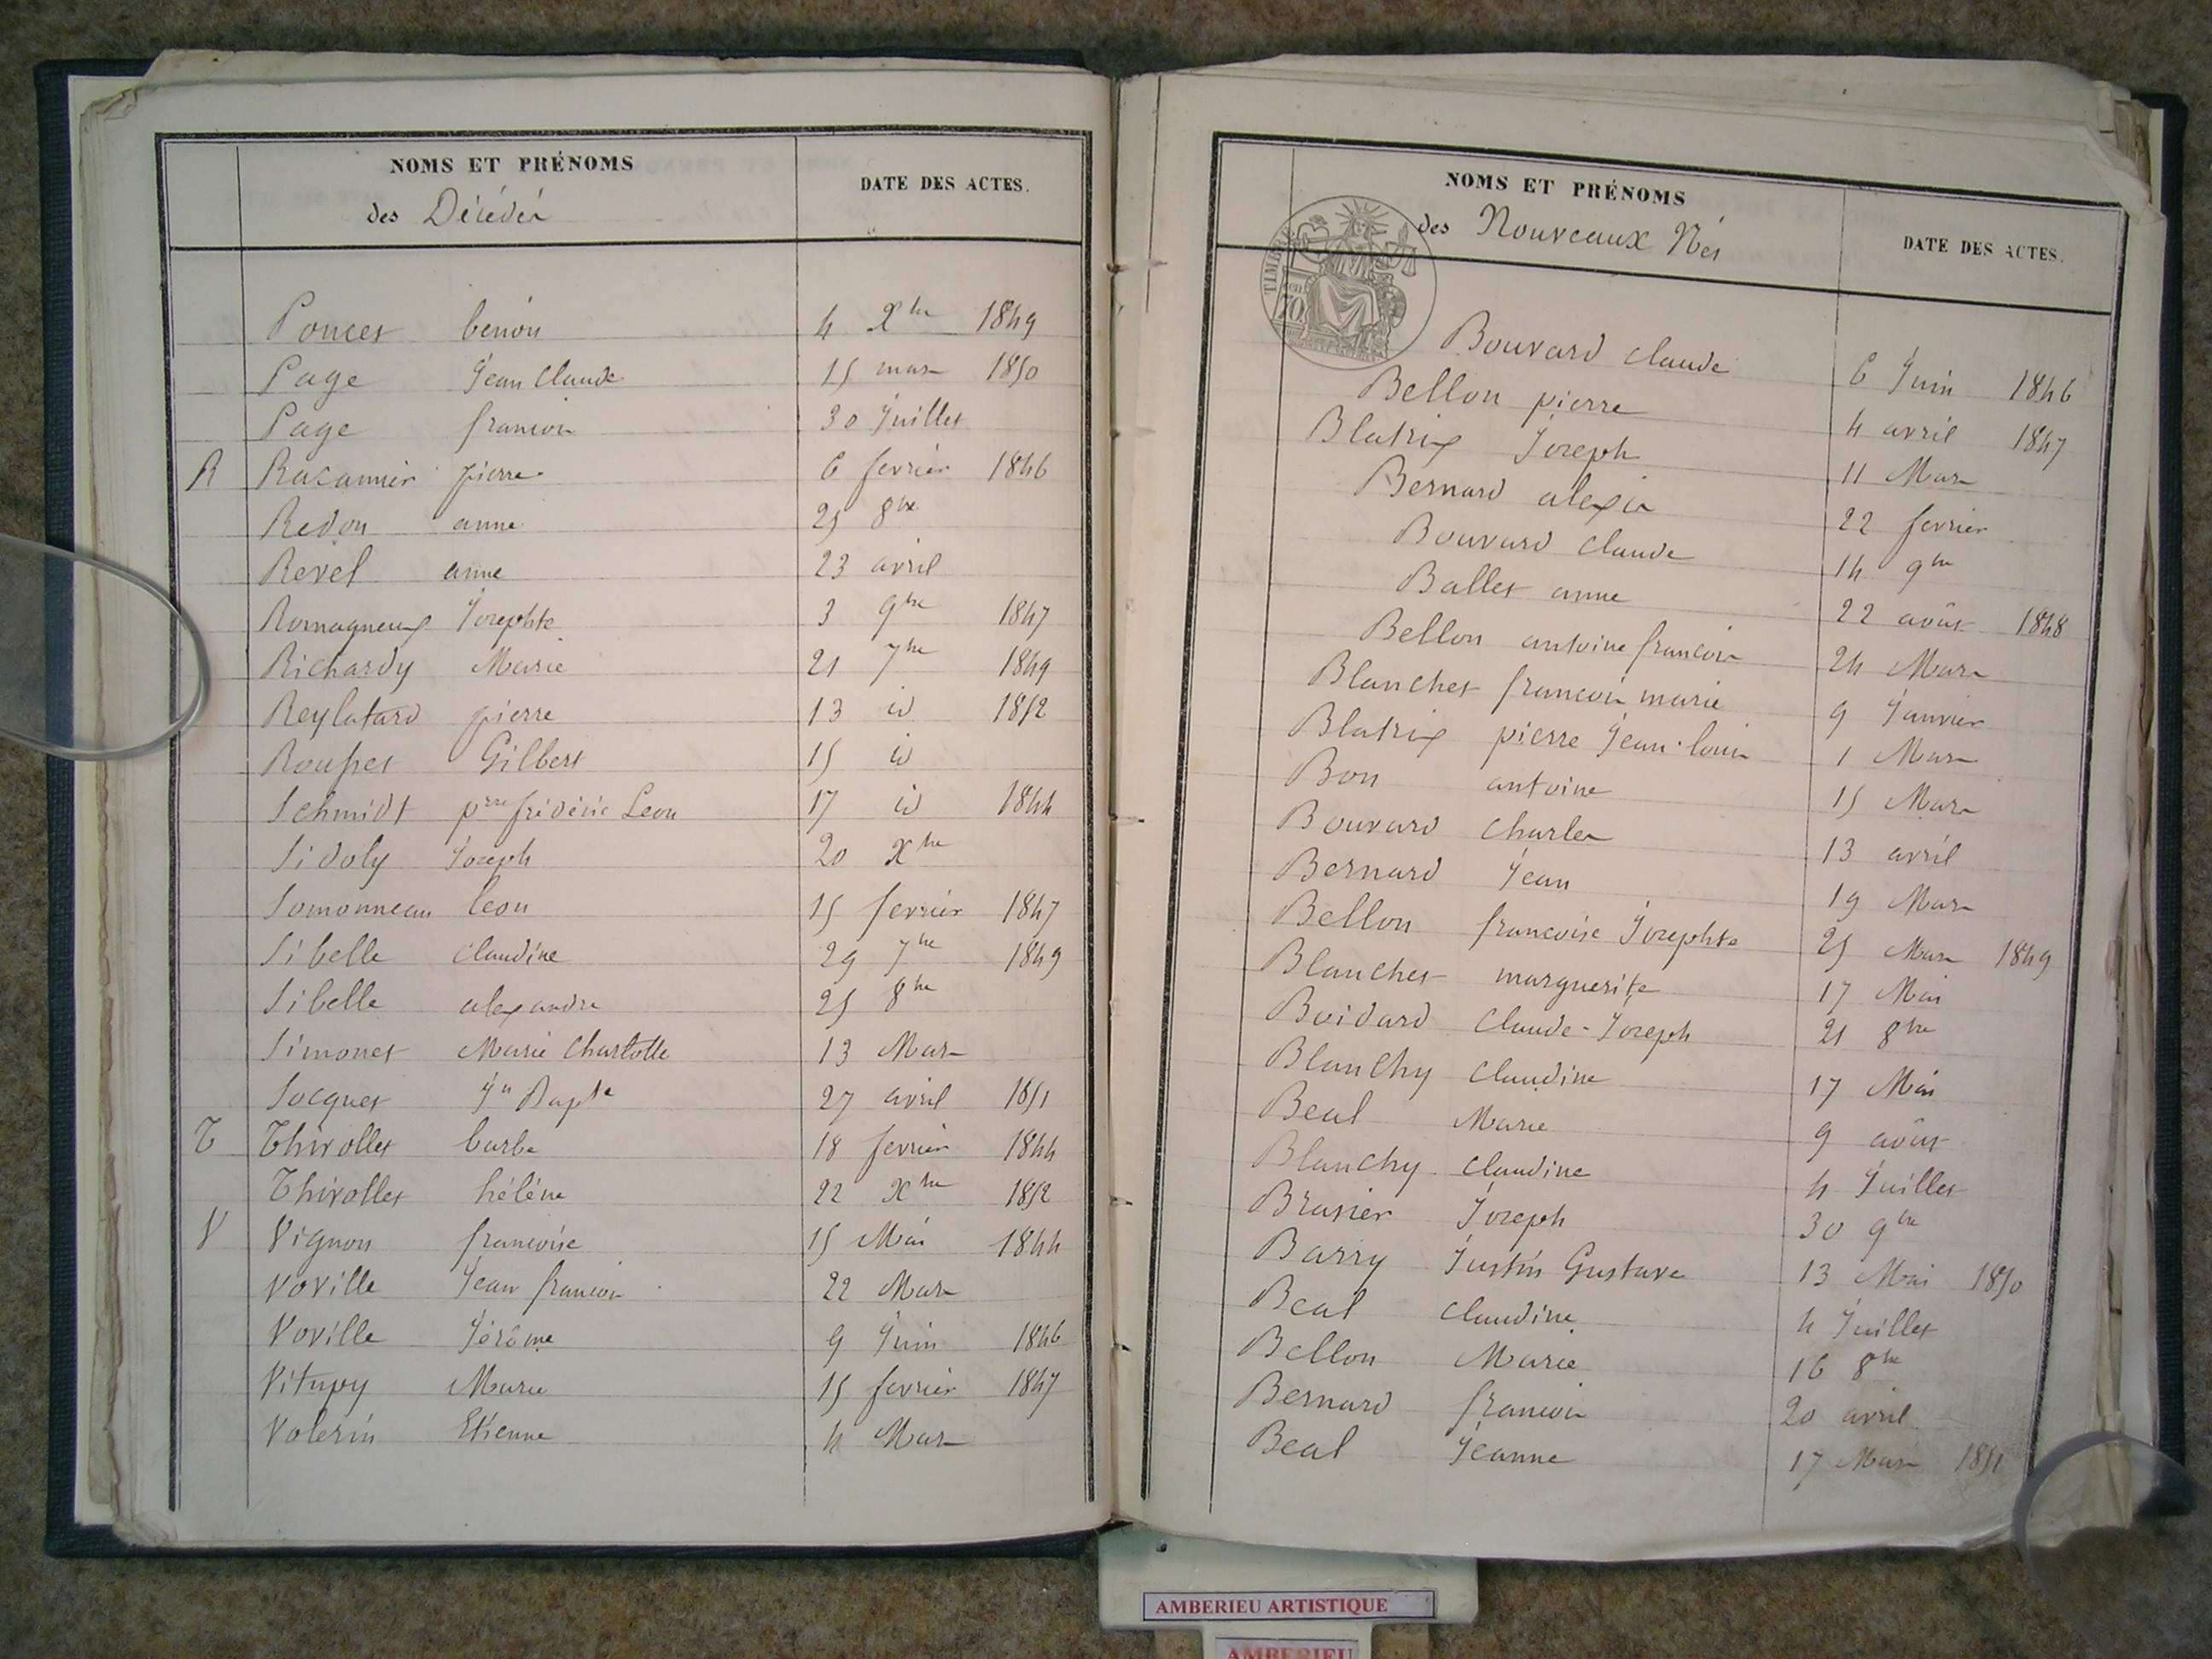 NOMS ET PRÉNOMS
des Décédés
DATE DES ACTES.
Poncet benoit 4 Xbre 1849
Page Jean Claude 15 mars 1850
Page francois 30 Juillet
R Racannier pierre 6 fevrier 1846
Redon anne 25 8bre
Revel anne 23 avril
Romagneux Josephte 3 9bre 1847
Richardy Marie 21 7bre 1849
Reylatard pierre 13 id 1852
Gilbert 15 id
Schmidt prre frédéric Leon 17 id 1844
Sidoly Joseph 20 Xbre
Somonneau leon 15 fevrier 1847
Sibelle claudine 29 7bre 1849
Sibelle alexandre 25 8bre
Simonet Marie Charlotte 13 Mars
Socquet Jn Bapte 27 avril 1851
T Thivollet barbe 18 fevrier 1844
Thivollet hélène 22 Xbre 1852
V Vignon francoise 15 Mai 1844
Voville Jean francois 22 Mars
Voville Jérôme 9 Juin 1846
Vitupy Marie 15 fevrier 1847
Volerin Etienne 4 Mars
NOMS ET PRÉNOMS
des Nouveaux Nés
DATE DES ACTES.
TIMBRE
en
70
Bouvard claude 6 Juin 1846
Bellon pierre 4 avril 1847
Blatrix Joseph 11 Mars
Bernard alexis 22 fevrier
Bouvard claude 14 9bre
Ballet anne 22 août 1848
Bellon antoine francois 24 Mars
Blanchet francois marie 9 Janvier
Blatrix pierre Jean-louis 1 Mars
Bon antoine 15 Mars
Bouvard Charles 13 avril
Bernard Jean 19 Mars
Bellon francoise Josephte 25 Mars 1849
Blanchet marguerite 17 Mai
Boidard Claude-Joseph 21 8bre
Blanchy Claudine 17 Mai
Beal Marie 9 août
Blanchy Claudine 4 Juillet
Brasier Joseph 30 9bre
Barry Justin Gustave 13 Mai 1850
Beal Claudine 4 Juillet
Bellon Marie 16 8bre
Bernard francois 20 avril
Beal Jeanne 17 Mars 1851
AMBERIEU ARTISTIQUE
AMBERIEU